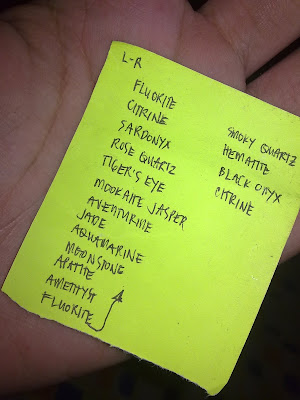 L-R
FLUORITE
CITRINE
SARDONYX
ROSE QUARTZ
TIGER'S EYE
MOOKAITE JASPER
AVENTURINE
JADE
AQUAMARINE
MOONSTONE
APATITE
AMETHYST
FLUORITE
SMOKY QUARTZ
HEMATITE
BLACK ONYX
CITRINE